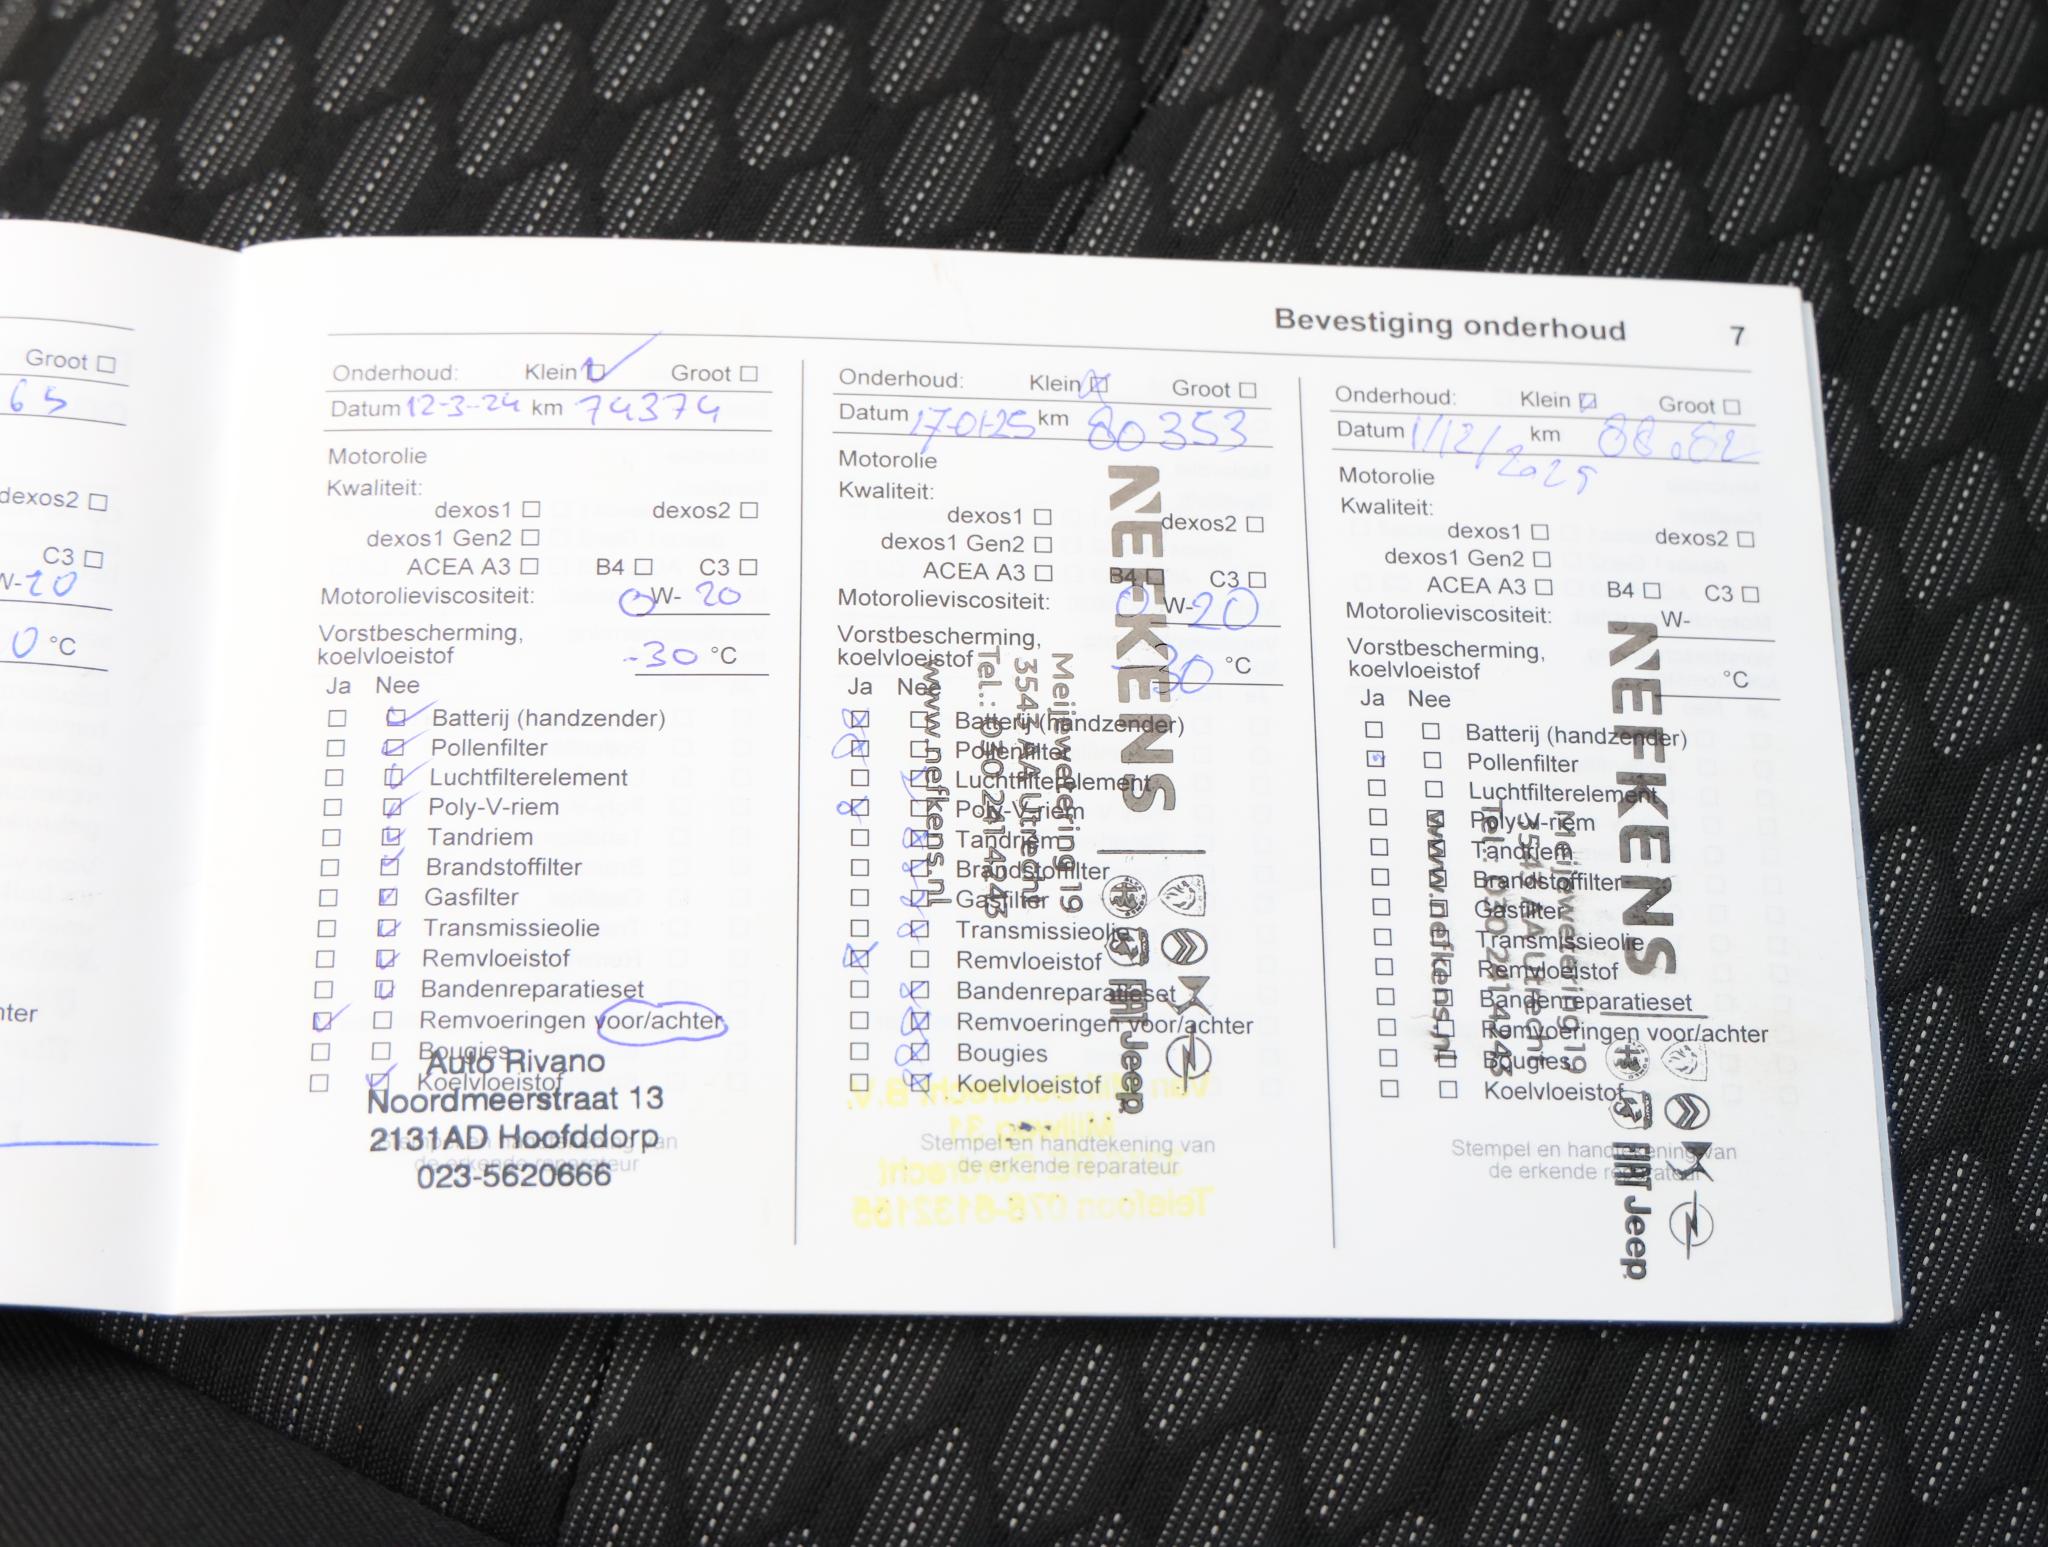 Groot
65
dexos2
C3
W-20
0 °C
Bevestiging onderhoud 7
Onderhoud: Klein Groot
Datum 12-3-24 km 74374
Motorolie
Kwaliteit:
dexos1 dexos2
dexos1 Gen2
ACEA A3 B4 C3
Motorolieviscositeit: 0W-20
Vorstbescherming,
koelvloeistof -30 °C
Ja Nee
Batterij (handzender)
Pollenfilter
Luchtfilterelement
Poly-V-riem
Tandriem
Brandstoffilter
Gasfilter
Transmissieolie
Remvloeistof
Bandenreparatieset
Remvoeringen voor/achter
Bougies
Koelvloeistof
Auto Rivano
Noordmeerstraat 13
2131AD Hoofddorp
023-5620666
Stempel en handtekening van
de erkende reparateur
Onderhoud: Klein Groot
Datum 17-01-25 km 80353
Motorolie
Kwaliteit:
dexos1 dexos2
dexos1 Gen2
ACEA A3 B4 C3
Motorolieviscositeit: 0W-20
Vorstbescherming,
koelvloeistof -30 °C
Ja Nee
Batterij (handzender)
Pollenfilter
Luchtfilterelement
Poly-V-riem
Tandriem
Brandstoffilter
Gasfilter
Transmissieolie
Remvloeistof
Bandenreparatieset
Remvoeringen voor/achter
Bougies
Koelvloeistof
Stempel en handtekening van
de erkende reparateur
NEFKENS
Meijewetering 19
3543 AA Utrecht
Tel.: 030 241 4243
www.nefkens.nl
FIAT Jeep
Telefoon 078-6132155
Onderhoud: Klein Groot
Datum 1/12/2025 km
Motorolie
Kwaliteit:
dexos1 dexos2
dexos1 Gen2
ACEA A3 B4 C3
Motorolieviscositeit: W-
Vorstbescherming,
koelvloeistof °C
Ja Nee
Batterij (handzender)
Pollenfilter
Luchtfilterelement
Poly-V-riem
Tandriem
Brandstoffilter
Gasfilter
Transmissieolie
Remvloeistof
Bandenreparatieset
Remvoeringen voor/achter
Bougies
Koelvloeistof
Stempel en handtekening van
de erkende reparateur
NEFKENS
Meijewetering 19
3543 AA Utrecht
Tel.: 030 241 4243
www.nefkens.nl
FIAT Jeep